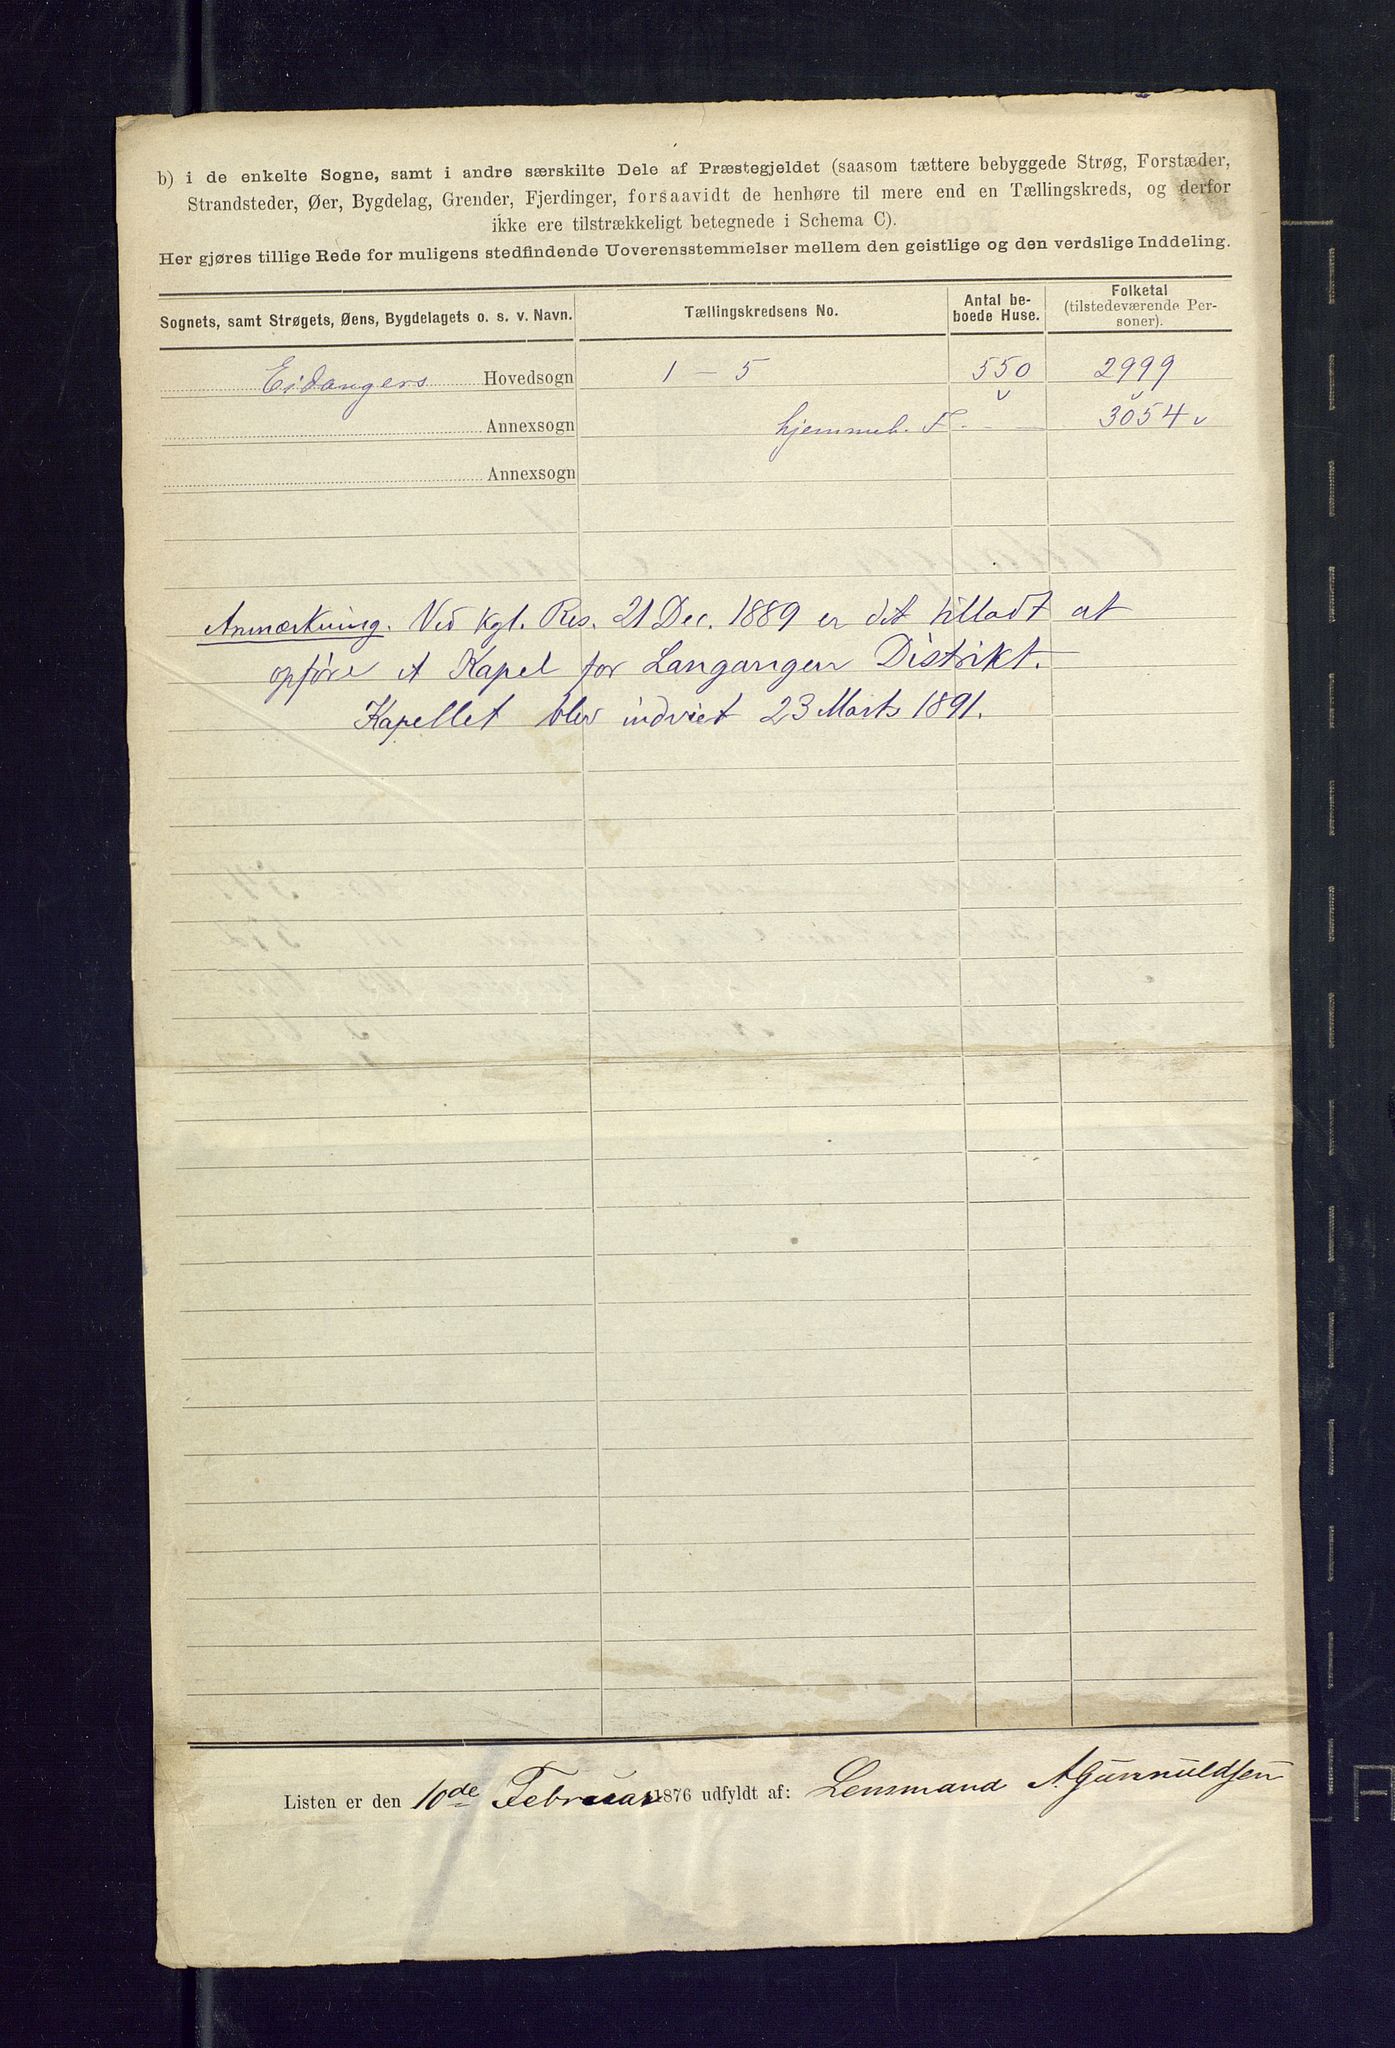 b) i de enkelte Sogne, samt i andre særskilte Dele af Præstegjeldet (saasom tættere bebyggede Strøg, Forstæder,
Strandsteder, Øer, Bygdelag, Grender, Fjerdinger, forsaavidt de henhøre til mere end en Tællingskreds, og derfor
ikke ere tilstrækkeligt betegnede i Schema C).
Her gjøres tillige Rede for muligens stedfindende Uoverensstemmelser mellem den geistlige og den verdslige Inddeling.
Sognets, samt Strøgets, Øens, Bygdelagets o. s. v. Navn. Tællingskredsens No. Antal be-
boede Huse. Folketal
(tilstedeværende Per-
soner).
Eidangers Hovedsogn 1 - 5 550 2999
Annexsogn hjemmeh. F. - - 3054
Annexsogn
Anmærkning. Ved kgl. Res. 21 Dec. 1889 er det tilladt at
opføre et Kapel for Langangen Distrikt.
Kapellet blev indviet 23 Marts 1891.
Listen er den 10de Februar 1876 udfyldt af: Lensmand A Gunnuldsen